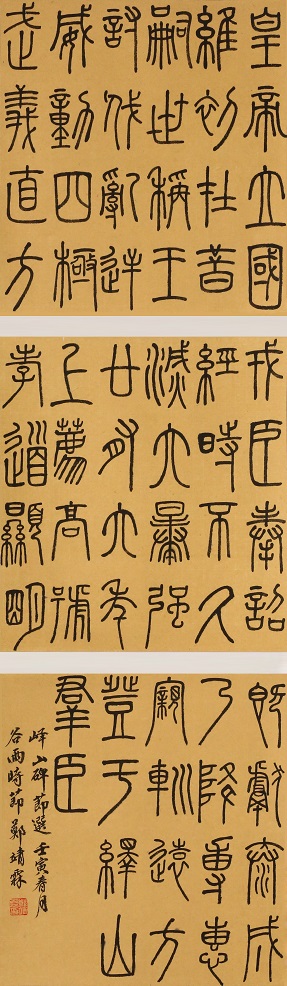 皇帝立國
維初在昔
嗣世稱王
討伐亂逆
威動四極
武義直方
戎臣奉詔
經時不久
滅六暴強
廿有六年
上薦高號
孝道顯明
既獻泰成
乃降專惠
寴䡅遠方
登于繹山
羣臣
嶧山碑節選壬寅春月
谷雨時節鄭靖霖